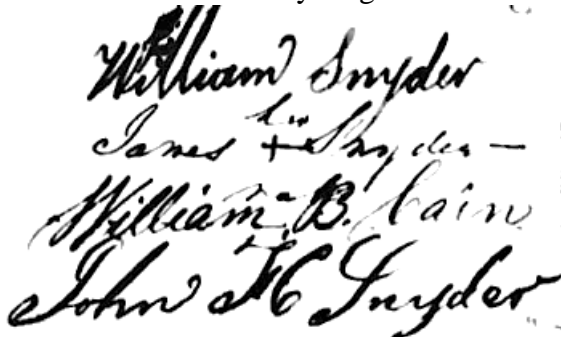 William Snyder
James his + Snyder —
William B. Cain
John H Snyder